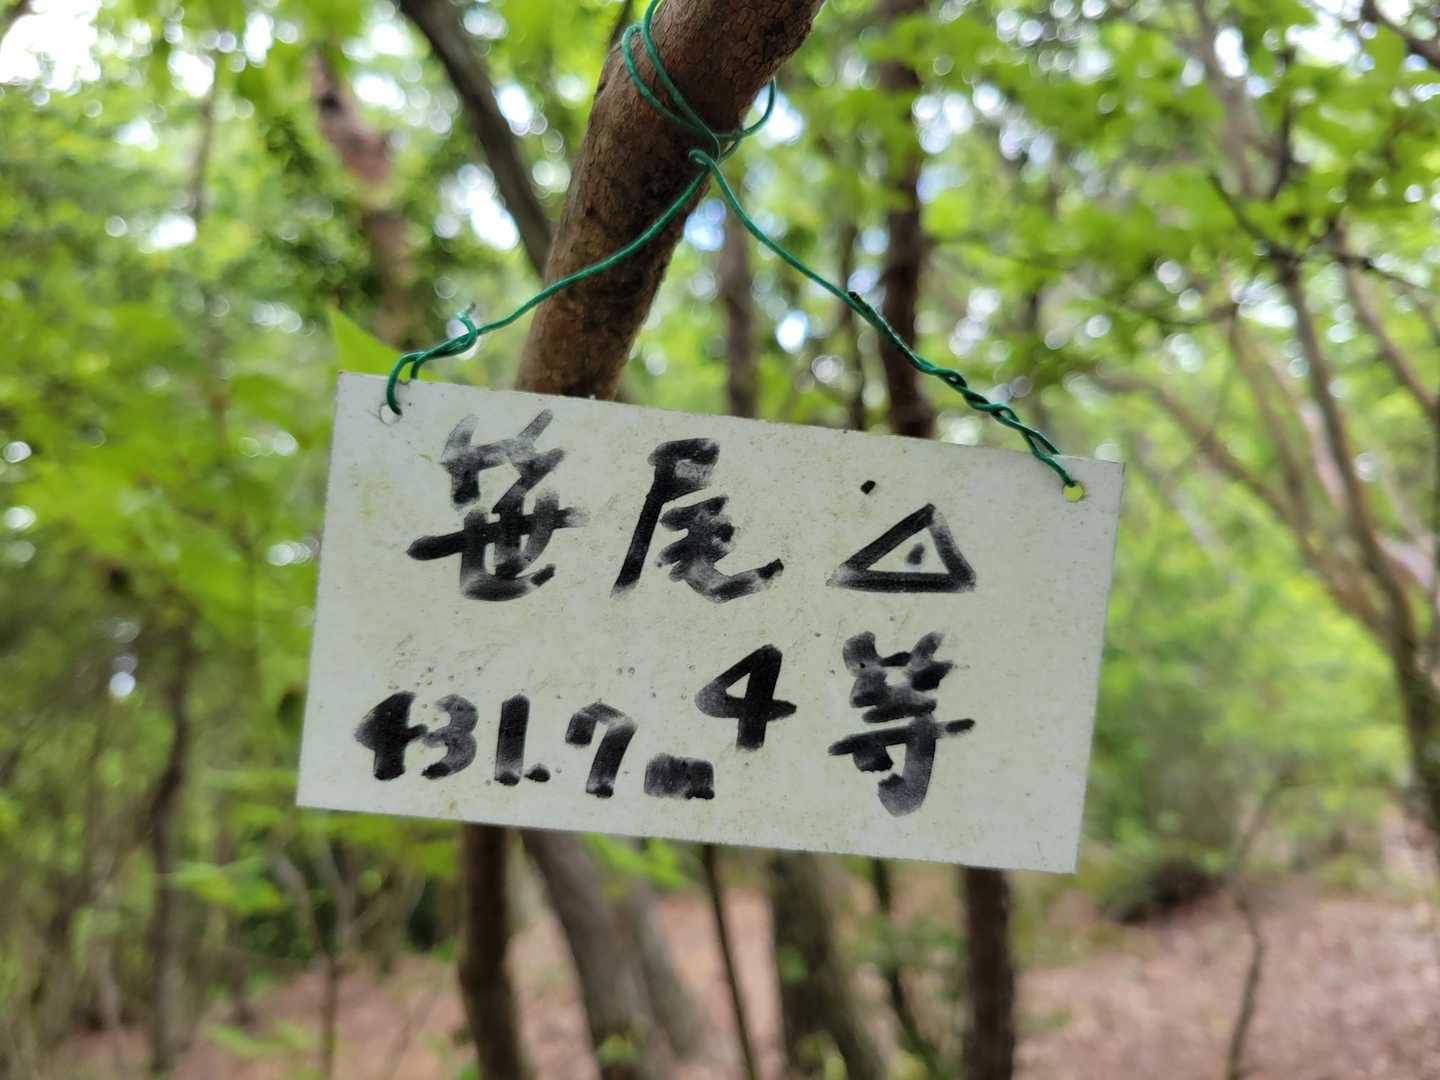 笹尾 △
431.7m 4等